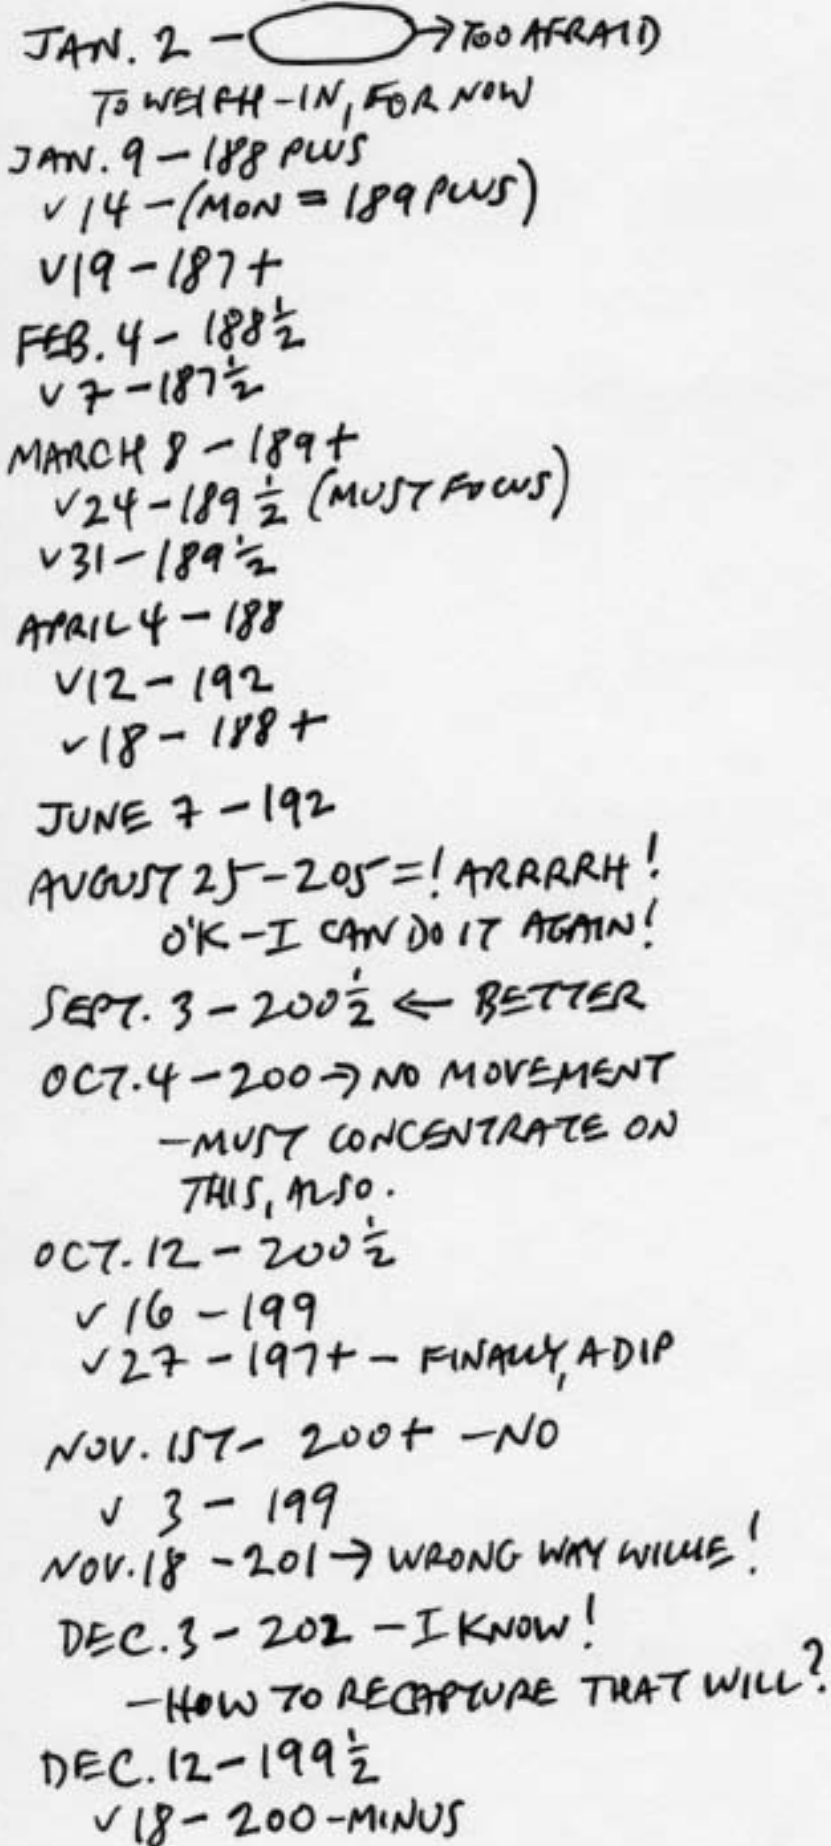 JAN. 2 – → TOO AFRAID
TO WEIGH-IN, FOR NOW
JAN. 9 – 188 PLUS
✓ 14 – (MON = 189 PLUS)
✓ 19 – 187+
FEB. 4 – 188 1/2
✓ 7 – 187 1/2
MARCH 8 – 189+
✓ 24 – 189 1/2 (MUST FOCUS)
✓ 31 – 189 1/2
APRIL 4 – 188
✓ 12 – 192
✓ 18 – 188+
JUNE 7 – 192
AUGUST 25 – 205 = ! ARRRRH!
O'K – I CAN DO IT AGAIN!
SEPT. 3 – 200 1/2 ← BETTER
OCT. 4 – 200 → NO MOVEMENT
– MUST CONCENTRATE ON
THIS, ALSO.
OCT. 12 – 200 1/2
✓ 16 – 199
✓ 27 – 197+ – FINALLY, A DIP
NOV. 1ST – 200+ – NO
✓ 3 – 199
NOV. 18 – 201 → WRONG WAY WILLIE!
DEC. 3 – 202 – I KNOW!
– HOW TO RECAPTURE THAT WILL?
DEC. 12 – 199 1/2
✓ 18 – 200 – MINUS